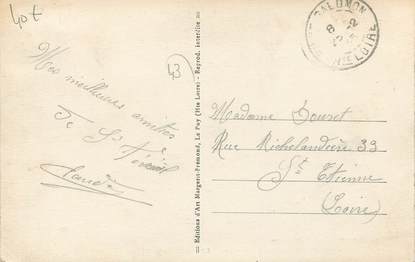 40t
43
Mes meilleures amitiés
de St
Claude
Editions d'Art Margerit-Brémond, Le Puy (Hte Loire) - Reprod. interdite
HTE LOIRE
Madame Douret
Rue Richelandière 33
St Etienne
(Loire)